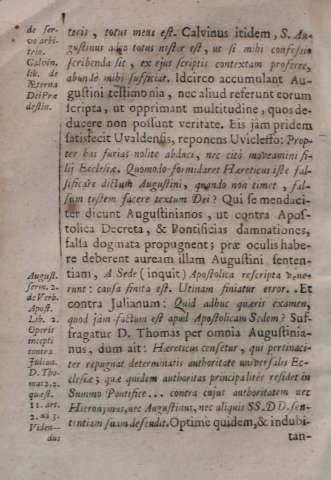 de ser-
vo arbi-
trio.
Calvin.
lib. de
Æterna
Dei Præ
destin.
tecis, totus meus est. Calvinus itidem, S. Au-
gustinus adeo totus noster est, ut si mihi confessio
scribenda sit, ex ejus scriptis contextam proferre,
abundè mihi sufficiat. Idcirco accumulant Au-
gustini testimonia, nec aliud referunt eorum
scripta, ut opprimant multitudine, quos de-
ducere non possunt veritate. Eis jàm pridem
satisfecit Uvaldensis, reponens Uvicleffo: Prop-
ter has furias nolite abduci, nec citò moveamini fi-
lij Ecclesiæ. Quomodo formidaret Hæreticus iste fal-
sificare dictum Augustini, quando non timet, fal-
sum testem facere textum Dei? Qui se mendaci-
ter dicunt Augustinianos, ut contra Apos-
tolica Decreta, & Pontificias damnationes,
falsa dogmata propugnent; præ oculis habe-
re deberent auream illam Augustini senten-
tiam, A Sede (inquit) Apostolica rescripta vene-
runt: causa finita est. Utinam finiatur error. Et
contra Julianum: Quid adhuc quæris examen,
quod jàm factum est apud Apostolicam Sedem? Suf-
fragatur D. Thomas per omnia Augustinia-
nus, dum ait: Hæreticus censetur, qui pertinaci-
ter repugnat determinatis authoritate universalis Ec-
clesiæ; quæ quidem authoritas principalitèr residet in
Summo Pontifice... contra cujus authoritatem nec
Hieronymus, nec Augustinus, nec aliquis SS. DD. sen-
tentiam suam defendit. Optimè quidem, & indubi-
tan-
August.
serm. 2.
de Verb.
Apost.
Lib. 2.
Operis
incepti
contra
Julian.
D. Tho-
mas 2. 2.
quæst.
11. art.
2. ad 3.
Viden-
dus